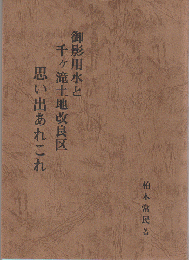 御影用水と
千ヶ滝土地改良区
思い出あれこれ
柏木富民